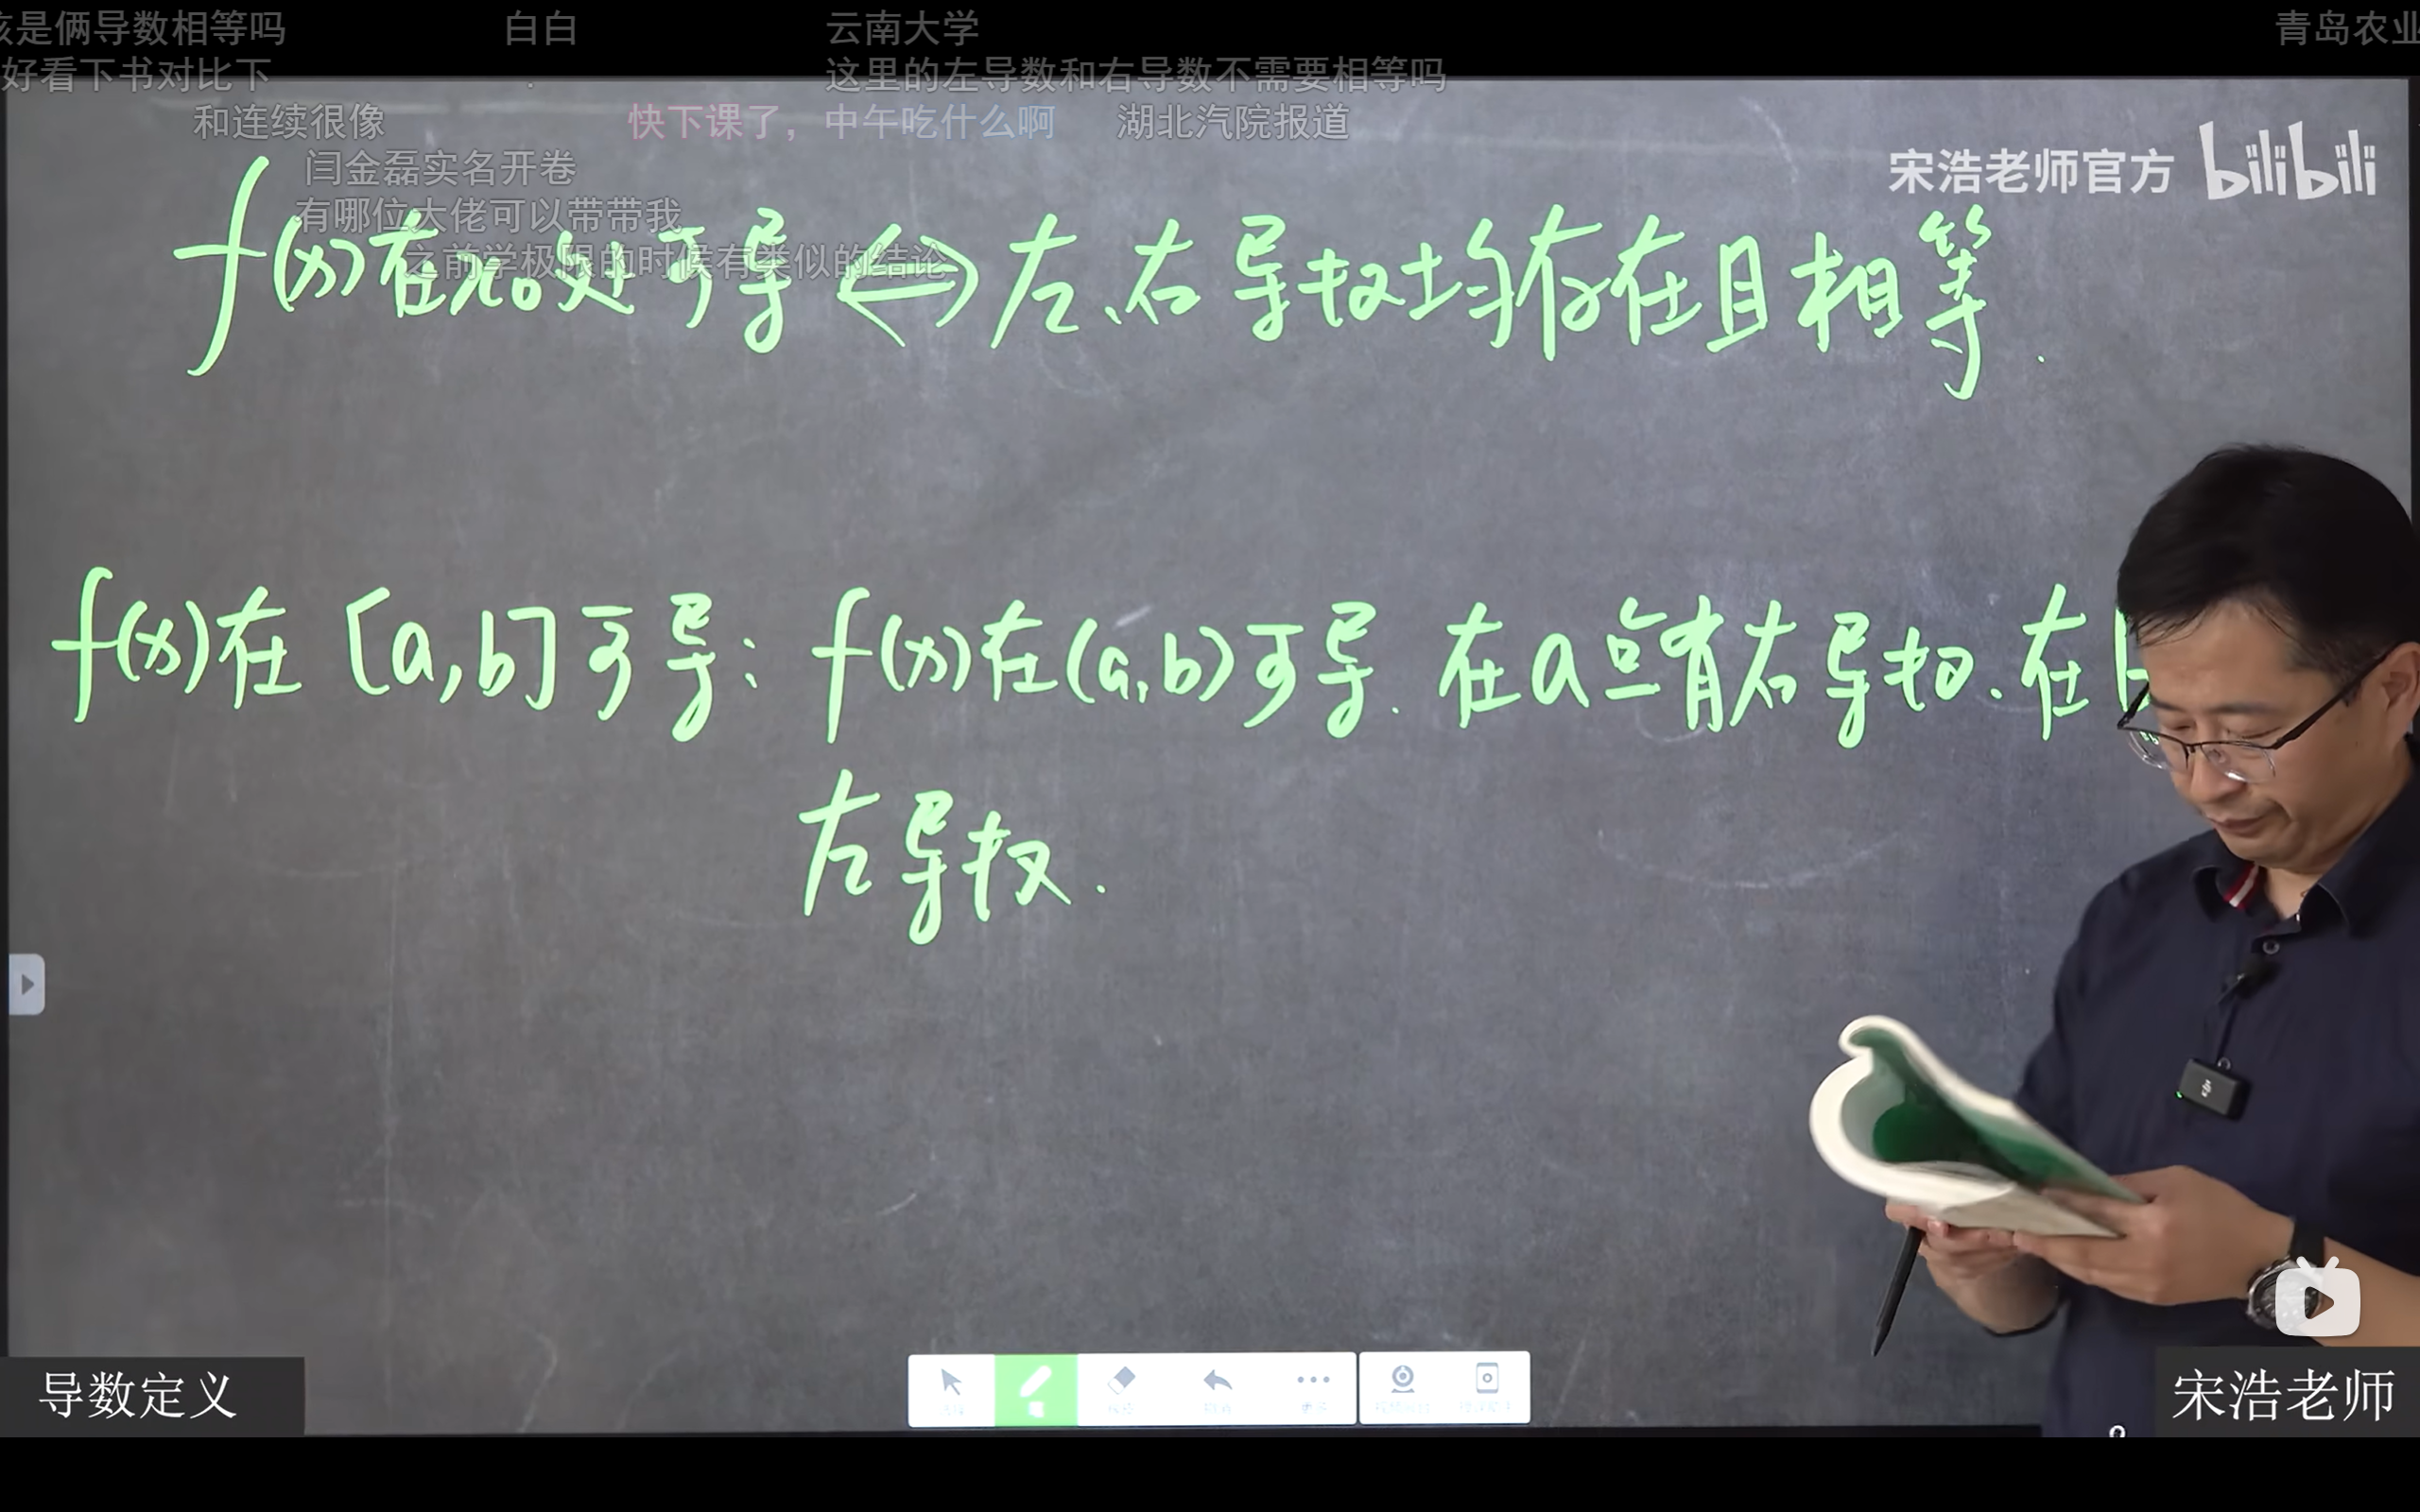 该是俩导数相等吗 白白 云南大学 青岛农业
好看下书对比下 这里的左导数和右导数不需要相等吗
和连续很像 快下课了，中午吃什么啊 湖北汽院报道
闫金磊实名开卷
宋浩老师官方 bilibili
有哪位大佬可以带带我
之前学极限的时候有类似的结论
f(x)在x₀处可导⇔左、右导数均存在且相等.
f(x)在[a,b]可导: f(x)在(a,b)可导. 在a点有右导数. 在b
左导数.
导数定义
宋浩老师